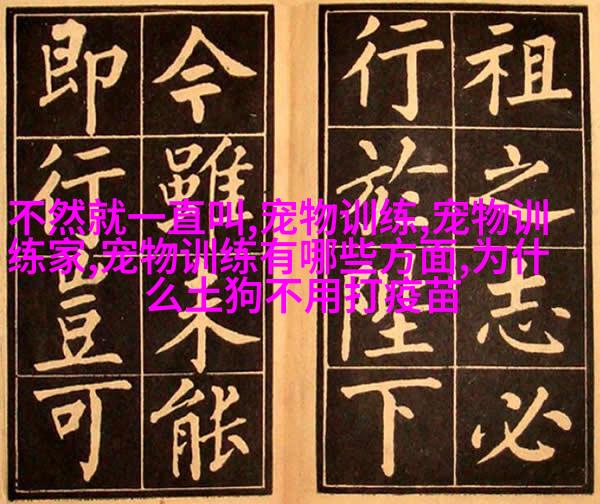 祖之志必
行於陛下
今雖未能
即行豈可
不然就一直叫,宠物训练,宠物训
练家,宠物训练有哪些方面,为什
么土狗不用打疫苗